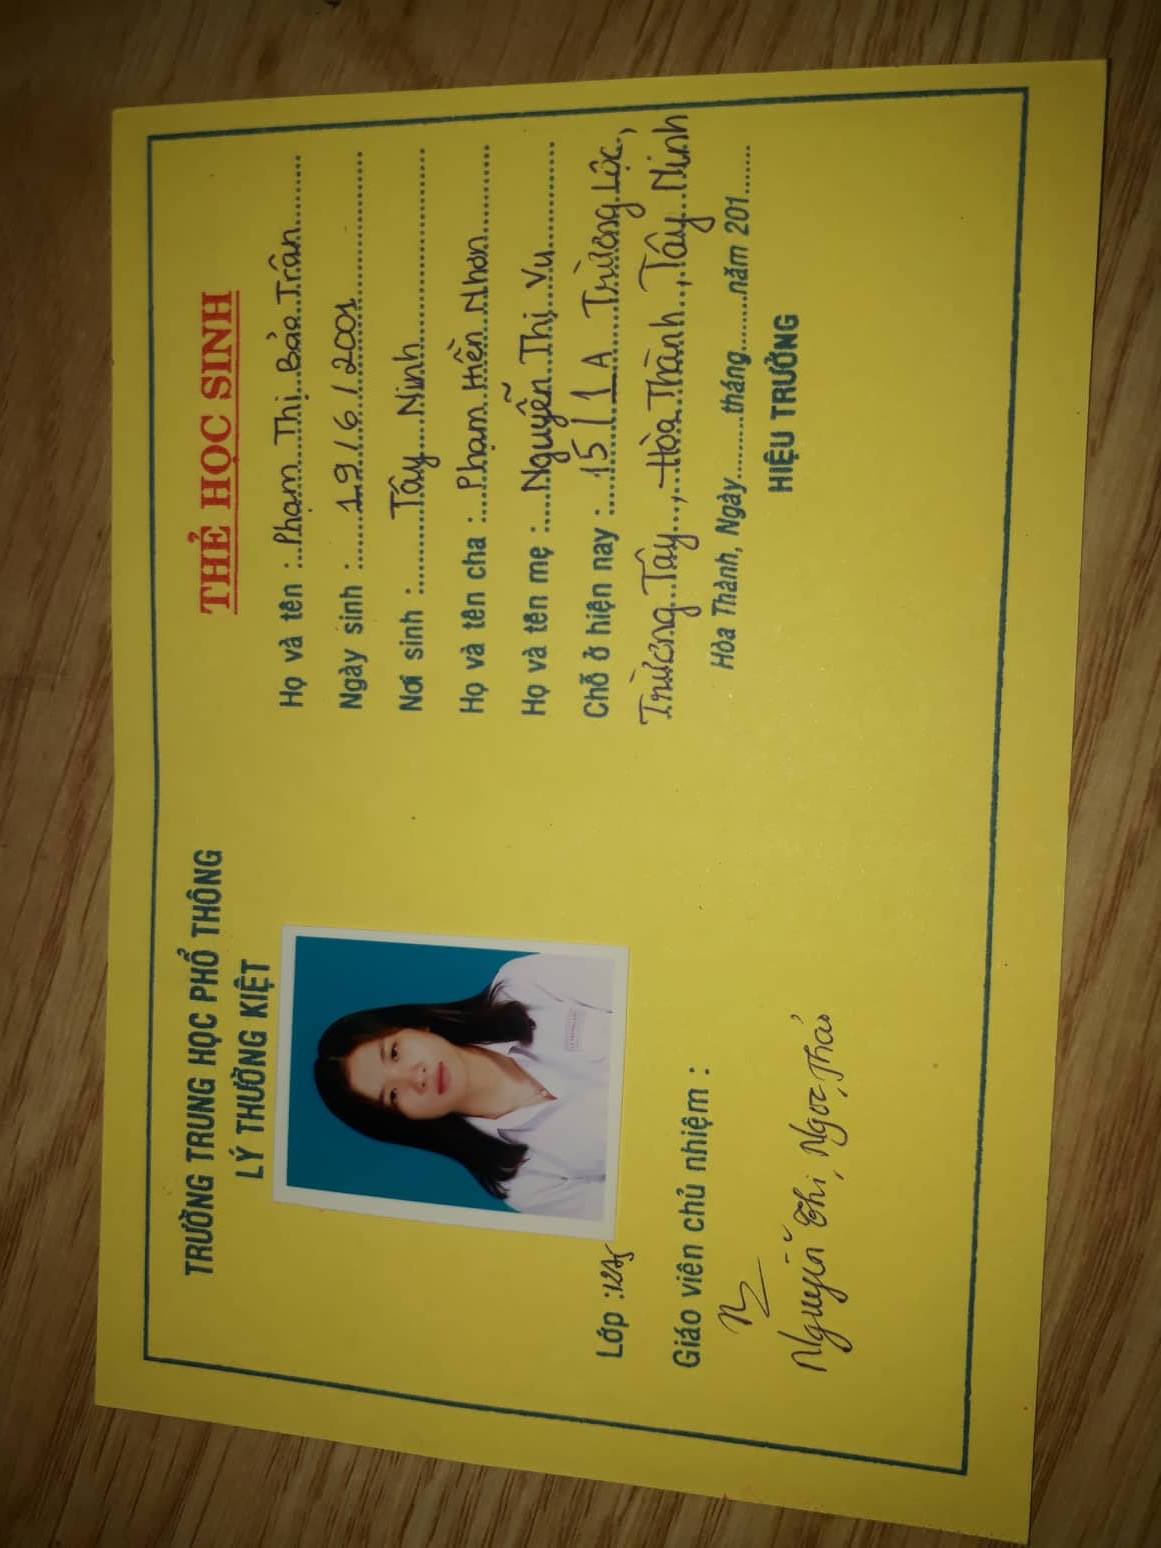 TRƯỜNG TRUNG HỌC PHỔ THÔNG
LÝ THƯỜNG KIỆT
Lớp :12A5
Giáo viên chủ nhiệm :
Nguyễn Thị Ngọc Thảo
THẺ HỌC SINH
Họ và tên : Phạm Thị Bảo Trân
Ngày sinh : 19/6/2001
Nơi sinh : Tây Ninh
Họ và tên cha : Phạm Hiền Nhơn
Họ và tên mẹ : Nguyễn Thị Vu
Chỗ ở hiện nay : 15/1A Trường Lộc,
Trường Tây, Hòa Thành, Tây Ninh
Hòa Thành, Ngày.........tháng.........năm 201......
HIỆU TRƯỞNG